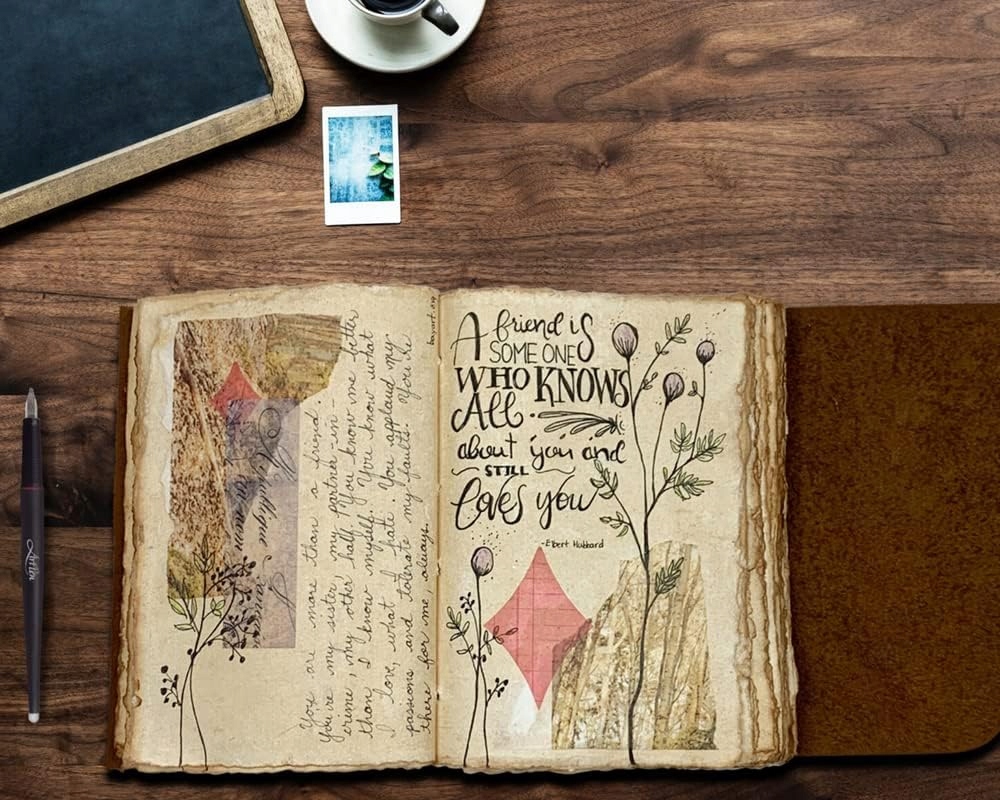 You are more than a friend.
You're my sister, my partner-in-
crime, my other half. You know me better
than I know myself. You know what
I love, what I hate. You applaud my
passions and tolerate my faults. You're
there for me, always.
A friend is
SOME ONE
WHO KNOWS
All
about you and
STILL
loves you
-Elbert Hubbard
Artlex